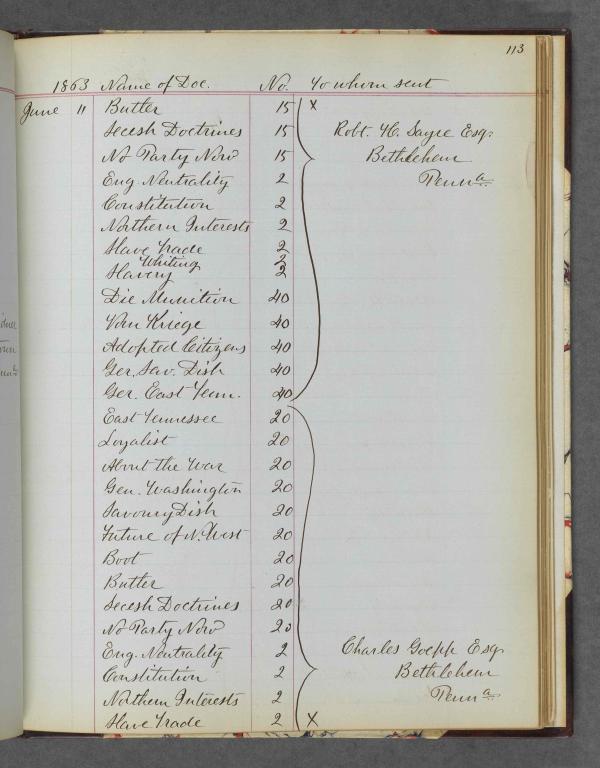 113
1863 Name of Doc. No. To whom sent
June 11 Butler 15 x
Secesh Doctrines 15 Robt. H. Sayre Esq.
No Party Now 15 Bethlehem
Eng. Neutrality 2 Penna
Constitution 2
Northern Interests 2
Slave Trade 2
Whiting 2
Slavery 2
Die Munition 40
Vom Kriege 40
Adopted Citizens 40
Ger. Sav. Dish 40
Ger. East Tenn. 40
East Tennessee 20
Loyalist 20
About the War 20
Gen. Washington 20
Savoury Dish 20
Future of N. West 20
Boot 20
Butler 20
Secesh Doctrines 20
No Party Now 20
Eng. Neutrality 2 Charles Goepp Esq.
Constitution 2 Bethlehem
Northern Interests 2 Penna
Slave Trade 2 x